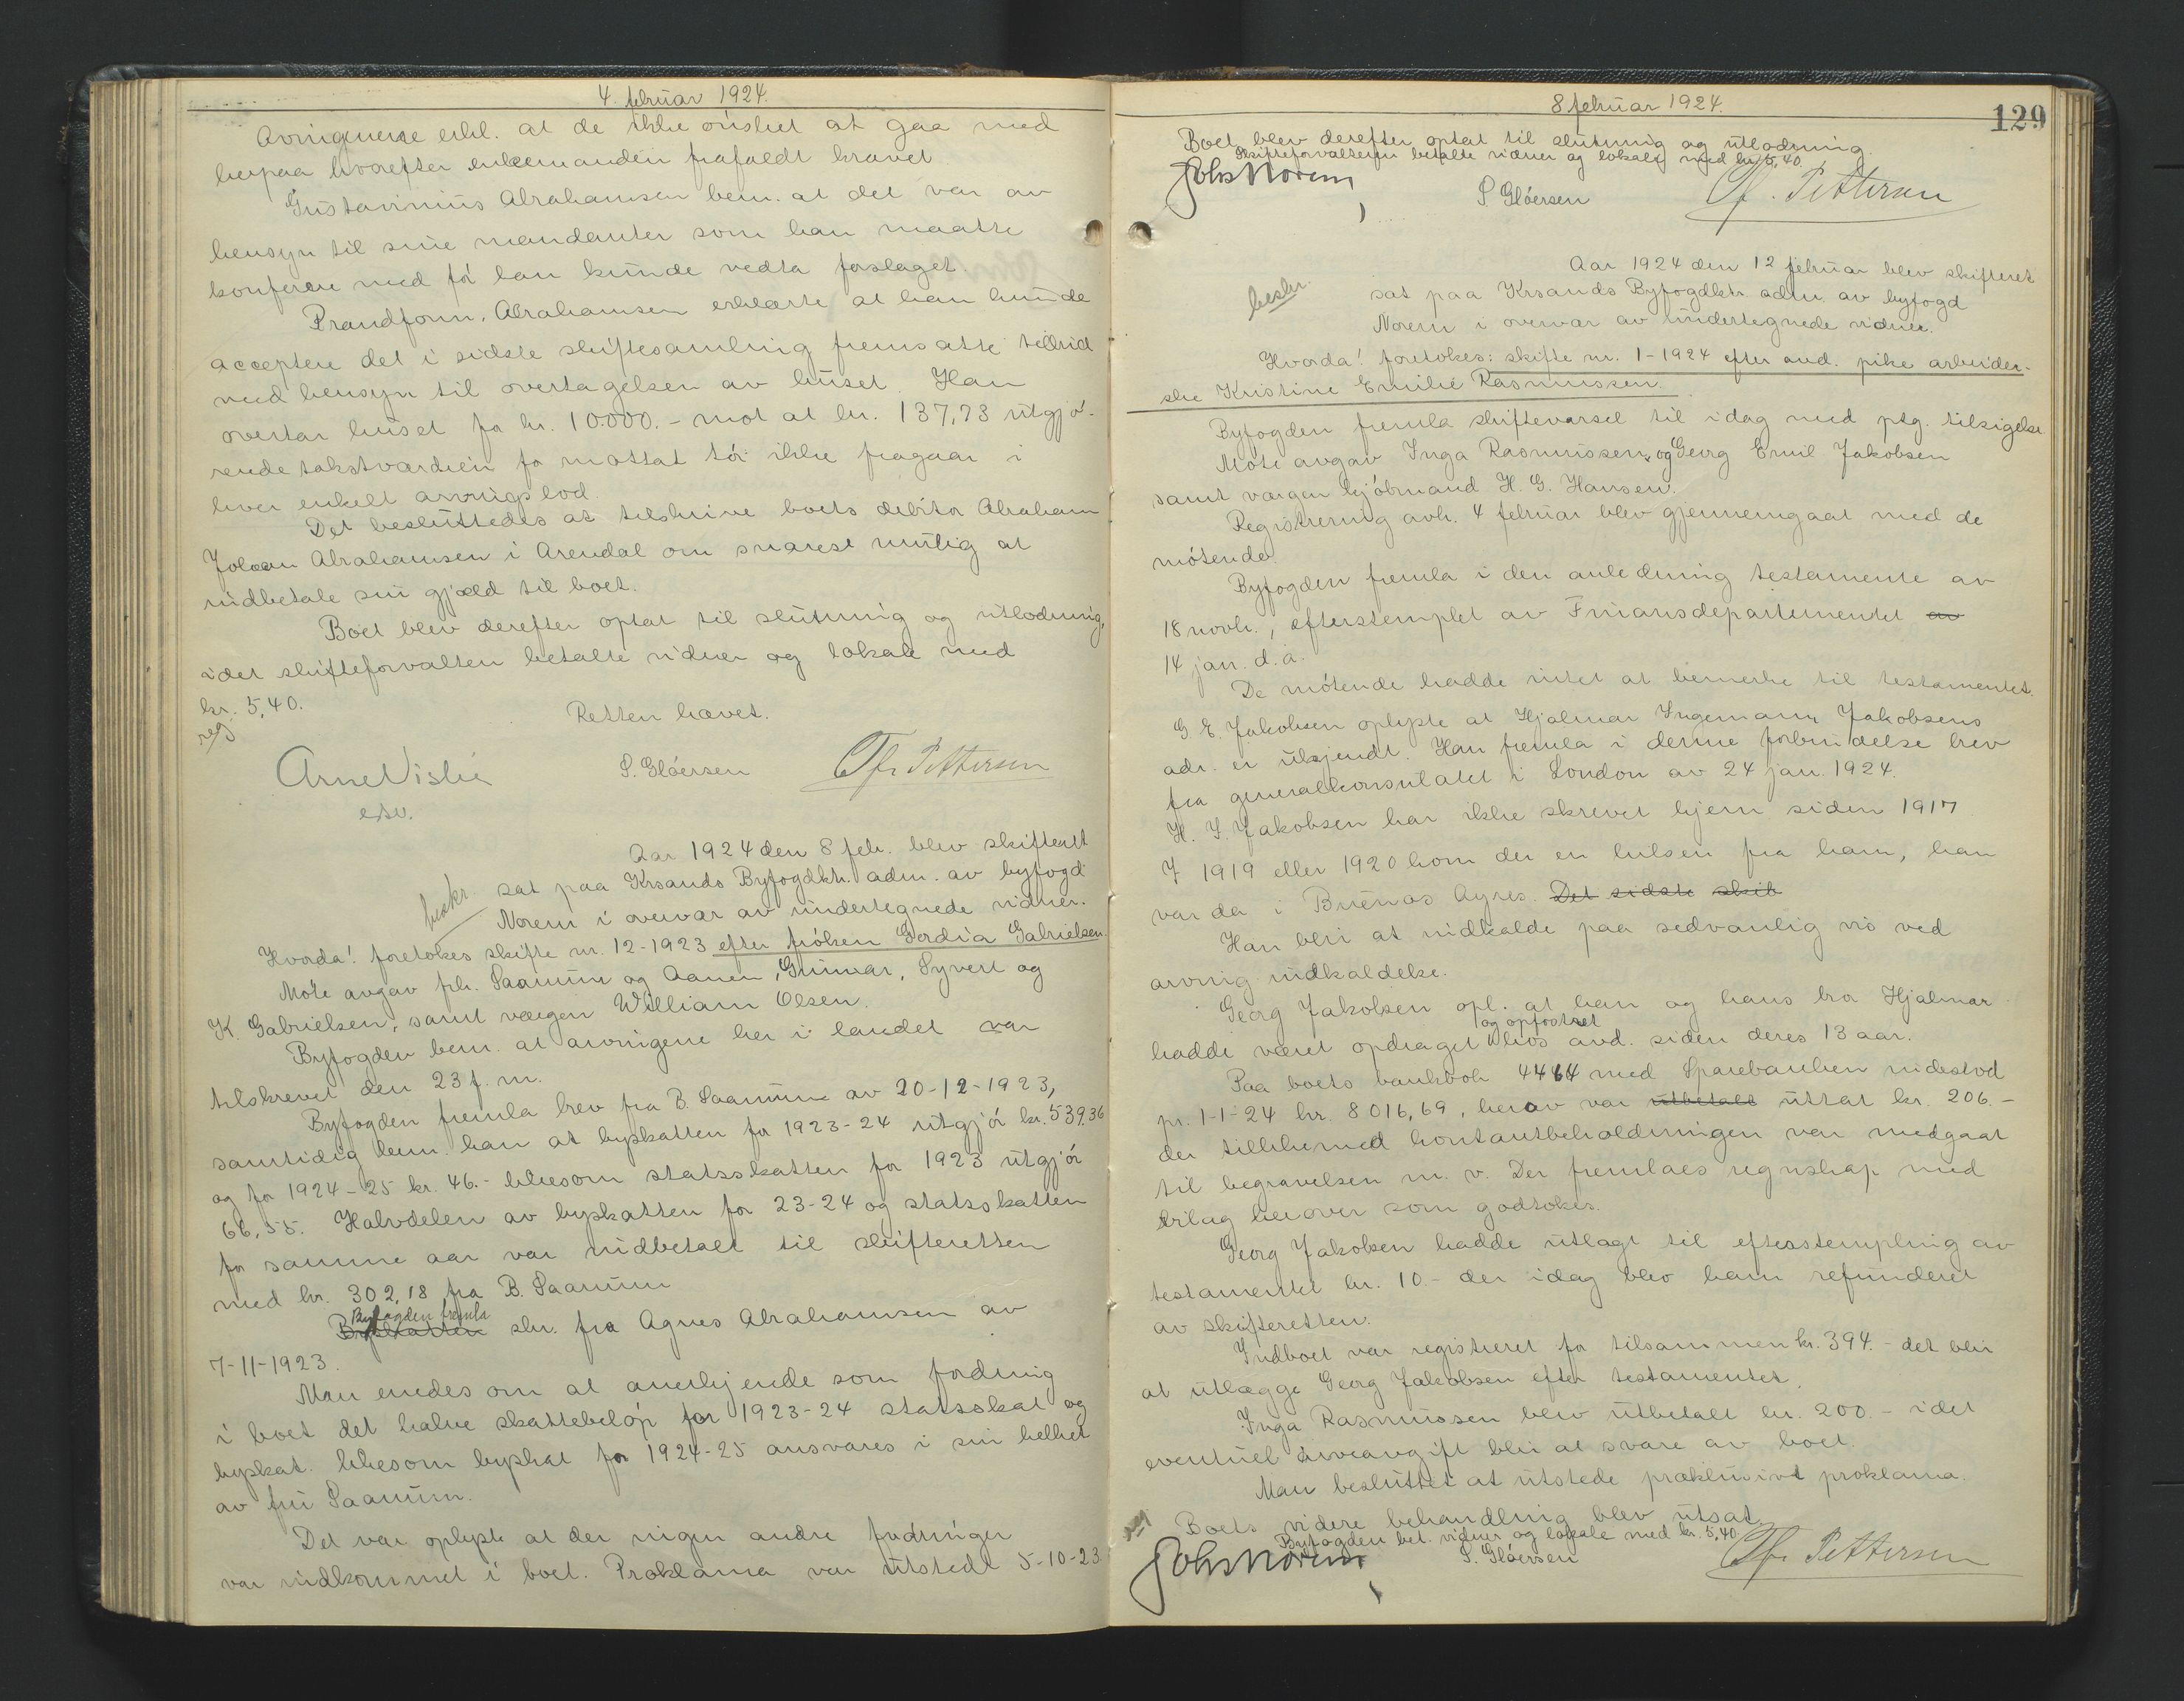 4. februar 1924.
Arvingerne erkl. at de ikke ønsket at gaa med
herpaa hvorefter enkemanden frafaldt kravet.
Gustavinius Abrahamsen bem. at det var av
hensyn til sine mandanter som han maatte
konferere med før han kunde vedta forslaget.
Brandform. Abrahamsen erklærte at han kunde
acceptere det i sidste skiftesamling fremsatte tilbud
med hensyn til overtagelsen av huset. Han
overtar huset for kr. 10.000.- mot at kr. 137,73 utgjø-
rende takstværdien for mottat tøi ikke fragaar i
hver enkelt arvingslod.
Det besluttedes at tilskrive boets debitor Abraham
Johan Abrahamsen i Arendal om snarest mulig at
indbetale sin gjæld til boet.
Boet blev derefter optat til slutning og utlodning,
idet skifteforvalteren betalte vidner og lokale med
kr. 5,40.
reg
Retten hævet.
Arne Vislie
esv.
S. Gløersen
Th. Pettersen
Aar 1924 den 8 feb. blev skifterett
beskr.
sat paa Krsands Byfogdktr. adm. av byfogd
Norem i overvær av undertegnede vidner.
Hvorda! foretokes skifte nr. 12-1923 efter frøken Gerdia Gabrielsen.
Møte avgav frk. Saanum og Aanen, Gunnar, Syvert og
K. Gabrielsen, samt værgen William Olsen.
Byfogden bem. at arvingene her i landet var
tilskrevet den 23 f. m.
Byfogden fremla brev fra B. Saanum av 20-12-1923,
samtidig bem. han at byskatten for 1923-24 utgjør kr. 539.36
og for 1924-25 kr. 46.- likesom statsskatten for 1923 utgjør
66,55. Halvdelen av byskatten for 23-24 og statsskatten
for samme aar var indbetalt til skifteretten
med kr. 302,18 fra B. Saanum
Byfogden fremla
Byskatten skr. fra Agnes Abrahamsen av
7-11-1923.
Man enedes om at anerkjende som fordring
i boet det halve skattebeløp for 1923-24 statsskat og
byskat. likesom byskat for 1924-25 ansvares i sin helhet
av fru Saanum.
Det var oplyst at der ingen andre fordringer
var indkommet i boet. Proklama var utstedt 5-10-23.
8 februar 1924.
129
Boet blev derefter optat til slutning og utlodning.
Skifteforvalteren betalte vidner og lokale med kr. 5,40.
Johs Norem
S. Gløersen
Th. Pettersen
Aar 1924 den 12 februar blev skifteret
beskr.
sat paa Krsands Byfogdktr. adm. av byfogd
Norem i overvær av undertegnede vidner.
Hvorda! foretokes: skifte nr. 1-1924 efter avd. pike arbeider-
ske Kristine Emilie Rasmussen.
Byfogden fremla skiftevarsel til idag med ptg. tilsigelse.
Møte avgav Inga Rasmussen og Georg Emil Jakobsen
samt værgen kjøbmand H. G. Hansen.
Registrering avh. 4 februar blev gjennemgaat med de
møtende.
Byfogden fremla i den anledning testamente av
18 novb., efterstemplet av Finansdepartementet av
14 jan. d. a.
De møtende hadde intet at bemerke til testamentet.
G. E. Jakobsen oplyste at Hjalmar Ingemann Jakobsens
adr. er ukjendt. Han fremla i denne forbindelse brev
fra generalkonsulatet i London av 24 jan. 1924.
H. I. Jakobsen har ikke skrevet hjem siden 1917
I 1919 eller 1920 kom der en hilsen fra ham, han
var da i Buenos Ayres. Det sidste skib
Han blir at indkalde paa sedvanlig vis ved
arving indkaldelse.
Georg Jakobsen opl. at han og hans bror Hjalmar
og opfostret
hadde været opdraget hos avd. siden deres 13 aar.
Paa boets bankbok 4464 med Sparebanken indestod
pr. 1-1-24 kr. 8016,69, herav var utbetalt uttat kr. 206.-
der tillikemed kontantbeholdningen var medgaat
til begravelsen m. v. Der fremlaes regnskap med
bilag herover som godtokes.
Georg Jakobsen hadde utlagt til efterstempling av
testamentet kr. 10.- der idag blev ham refunderet
av skifteretten.
Indboet var registreret for tilsammen kr. 394.- det blir
at utlægge Georg Jakobsen efter testamentet.
Inga Rasmussen blev utbetalt kr. 200.- idet
eventuel arveavgift blir at svare av boet.
Man besluttet at utstede præklusivt proklama.
reg
Boets videre behandling blev utsat.
Byfogden bet. vidner og lokale med kr. 5,40.
Johs Norem
S. Gløersen
Th. Pettersen